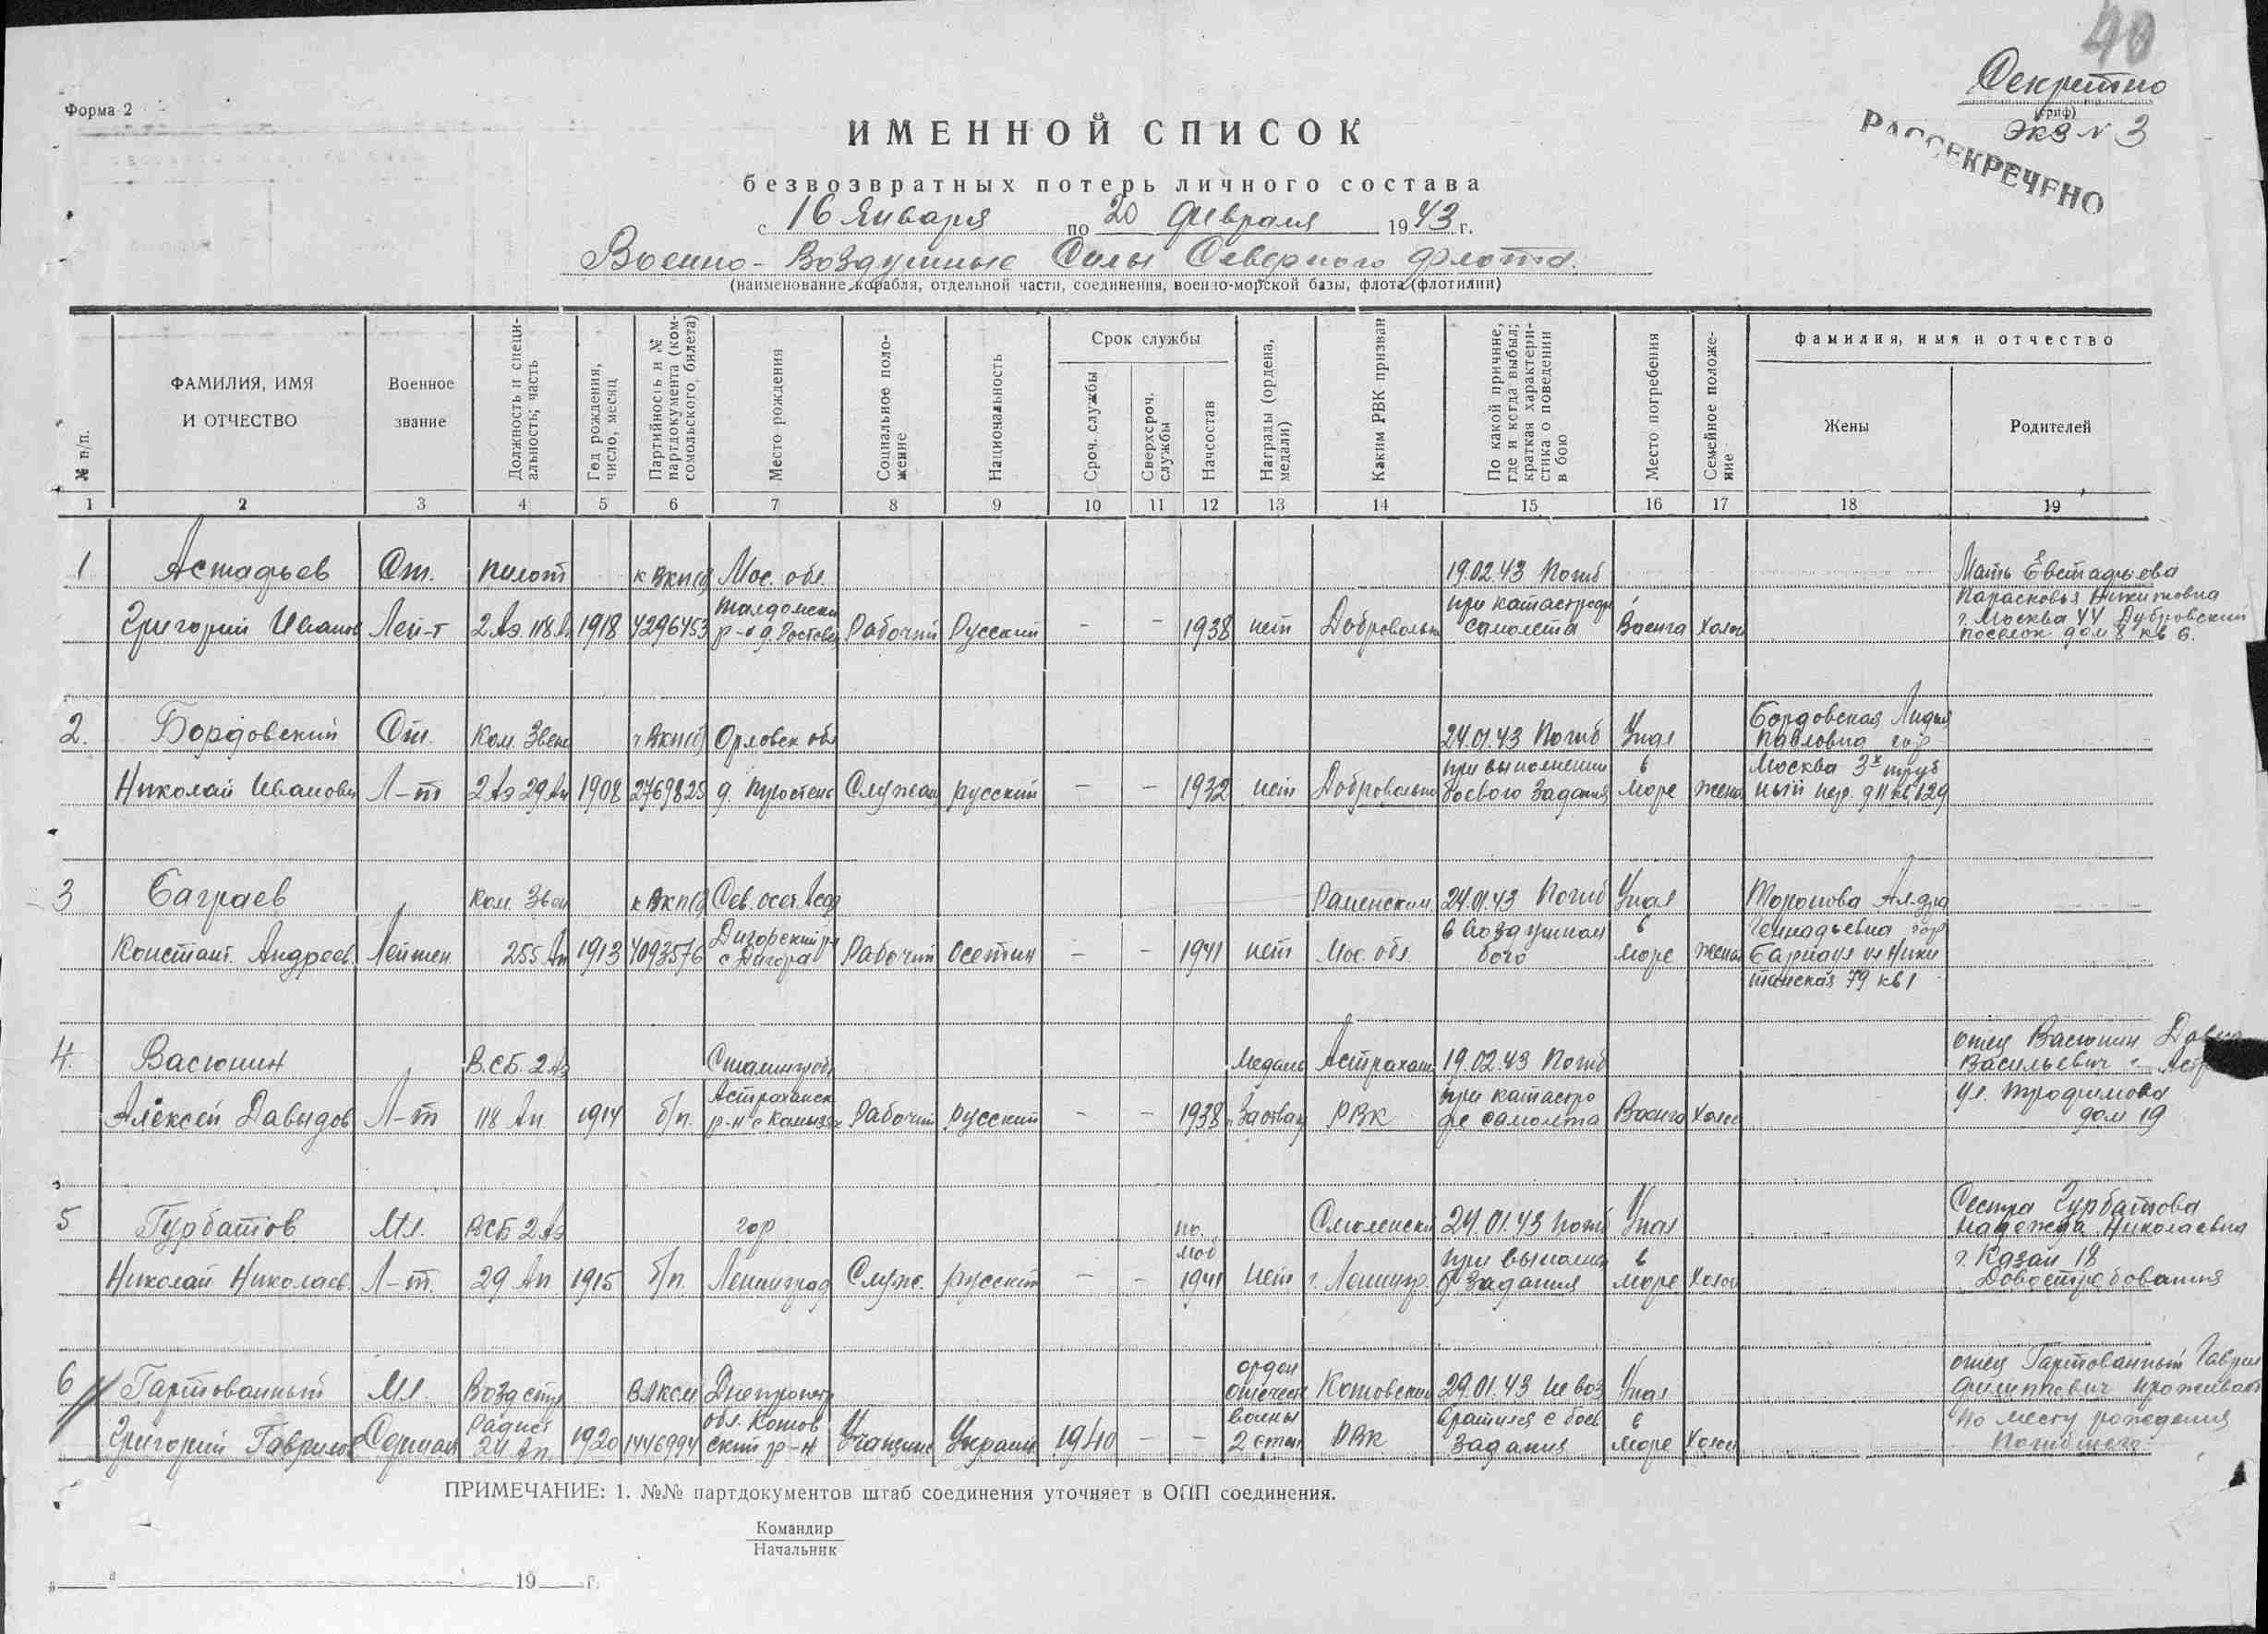 40
Секретно
(гриф)
экз № 3
РАССЕКРЕЧЕНО
Форма 2
ИМЕННОЙ СПИСОК
безвозвратных потерь личного состава
с 16 Января по 20 февраля 1943 г.
Военно-Воздушные Силы Северного Флота.
(наименование корабля, отдельной части, соединения, военно-морской базы, флота (флотилии)
№ п/п.
ФАМИЛИЯ, ИМЯ
И ОТЧЕСТВО
Военное
звание
Должность и специ-
альность; часть
Год рождения,
число, месяц
Партийность и №
партдокумента (ком-
сомольского билета)
Место рождения
Социальное поло-
жение
Национальность
Срок службы
Сроч. службы
Сверхсроч.
службы
Начсостав
Награды (ордена,
медали)
Каким РВК призван
По какой причине,
где и когда выбыл;
краткая характери-
стика о поведении
в бою
Место погребения
Семейное положе-
ние
фамилия, имя и отчество
Жены
Родителей
1 2 3 4 5 6 7 8 9 10 11 12 13 14 15 16 17 18 19
1 Астафьев Ст. пилот к ВКП(б) Мос. обл. 19.02.43 Погиб Мать Евстафьева
Талдомски при катастроф Парасковья Никитовна
Григорий Иванов Лей-т 2 Аэ 118 А 1918 4296453 р-н д. Ростовц Рабочий Русский - - 1938 нет Добровольн самолета Ваенга Холост г. Москва 44 Дубровский
поселок дом 8 кв 6.
2. Бордовский Ст. Ком. Звена ВКП(б) Орловск обл 24.01.43 Погиб Упал Бордовская Лидия
Павловна гор
при выполнении в Москва 3х труб
Николай Иванович Л-т 2 Аэ 29 Ап 1908 2769825 д. Служащ русский - - 1932 нет Добровольно боевого задания море женат ный пер. д 11 кв 129
3 Баграев Ком. Звен к ВКП(б) Сев. осет. Асср Раменским 24.01.43 Погиб Упал Торопова Ал-дра
Дигорский р-н в воздушном в Геннадьевна гор
Констант. Андреев. Лейтен. 255 Ап 1913 4093576 с Дигора Рабочий осетин - - 1941 нет Мос. обл. бою море женат Барнаул ул Ники
тинская 79 кв 1
4. Васюнин В.СБ. 2 Аэ Сталингр обл Медаль Астрахан. 19.02.43 Погиб отец Васюнин Давид
Васильевич г.
Астраханск при катастро ул. Трофимова
Алексей Давыдов Л-т 118 Ап 1914 б/п. р-н с. Камызяк Рабочий русский - - 1938 РВК фе самолета Ваенга Холос дом 19
5 Гурбатов Мл. ВСБ 2 Аэ гор по. Смоленский 24.01.43 погиб Упал Сестра Гурбатова
Надежда Николаевна
моб при выполнен в г. Казань 18
Николай Николаев. Л-т. 29 Ап 1915 б/п. Ленинград Служ. русский - - 1941 нет г. Ленингр. б. задания море Холос Довостребования
6 Гартованный Мл. Возд стр ВЛКСМ Днепропетр орден
отечест Котовским 29.01.43 не воз Упал отец Гартованный Гаврил
Филиппович проживает
Радист обл. Котов войны вратился с боев в по месту рождения
Григорий Гаврилов Сержан 24 Ап. 1920 1446994 ский р-н Учащийс Украин 1940 - - 2 степ РВК задания море Холос погибшего
ПРИМЕЧАНИЕ: 1. №№ партдокументов штаб соединения уточняет в ОПП соединения.
Командир
Начальник
"___" ___ 19___ г.